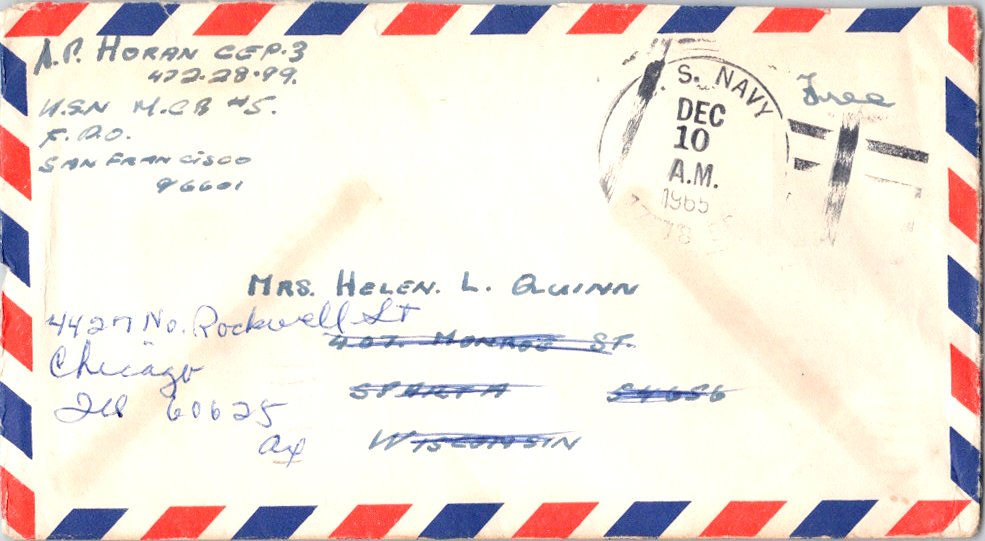 A.P. HORAN CEP-3
472-28-99.
U.S.N M.C.B #5.
F.P.O.
SAN FRANCISCO
96601
U.S. NAVY
DEC
10
A.M.
1965
Free
MRS. HELEN. L. QUINN
4427 No. Rockwell St
407. MONROE ST.
Chicago
SPARTA 54656
Ill 60625
WISCONSIN